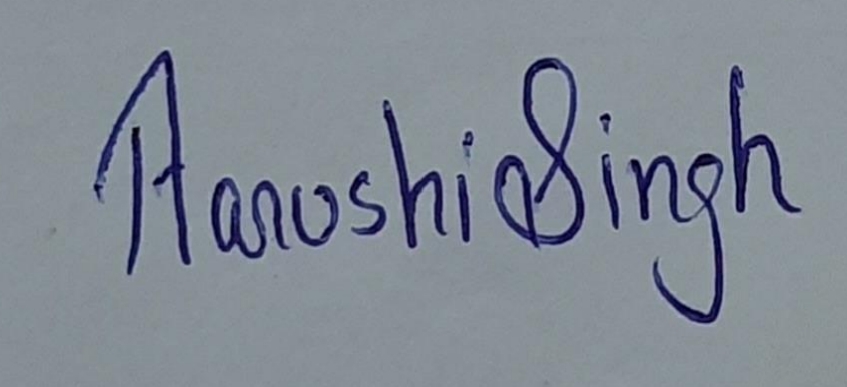 Aarushi Singh